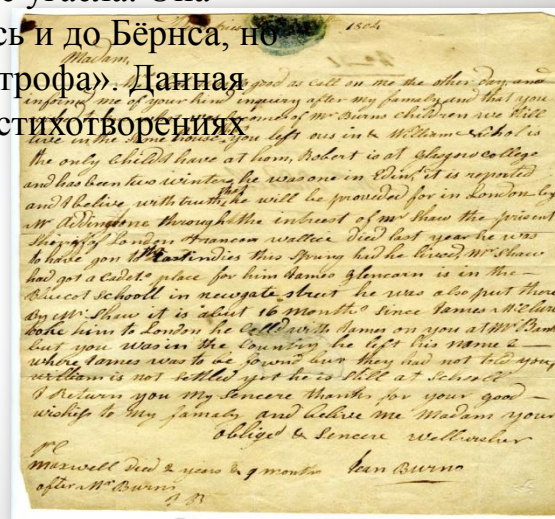 угасла. Она
сь и до Бёрнса, но
трофа». Данная
стихотворениях
1804
Madam,
so good as call on me the other day and
informd me of your kind inquiry after my famaly and that you
of Mr Burns children we Still
live in the Same house you left ous in & William Nichol is
the only Child I have at hom, Robert is at Glasgow College
and has been two winters he was one in Edinr, it is reported
and I belive with truth that he will be provided for in London by
Mr Addington through the intrest of mr Shaw the present
Sheriff of London Francea wallice died last year he was
to have gon to the East indies this Spring had he lived, Mr Shaw
had got a Cadets place for him James Glencarn is in the
Blucot Schooll in newgate street he was also put there
By Mr Shaw it is abut 16 months Since James
him to London he Calld with James on you at
but you was in the Country he left his name &
where James was to be found but they had not told you,
william is not settled yet he is Still at Schooll
I Return you my Sencere thanks for your good
wishes to my famaly and belive me Madam your
obliged & Sencere wellwisher
Maxwell died 2 years & 9 months Jean Burns
after Mr Burns